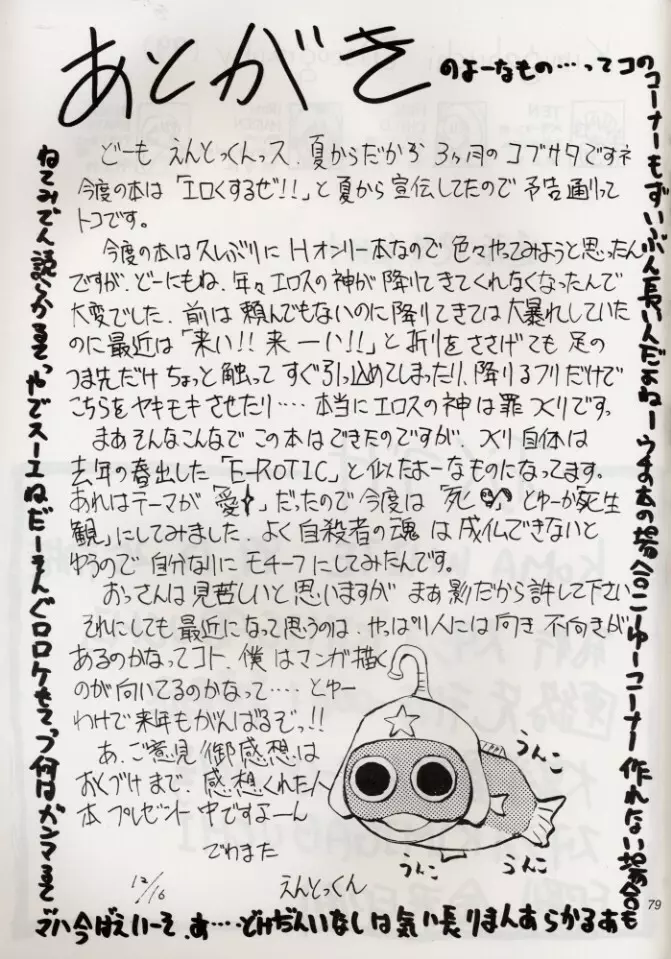 あとがき
のよーなもの…ってコのコーナーもずいぶん長いんだよねーウチの本の場合こーゆーコーナー作れない場合も
あるからあんまり長い気はしないんだけど…。あ、そーいえば今ハマ
ってるマンガは何つってもケロロぐんそーだねエースでやってるぶん読んでみてね
どーも えんとっくんっス.夏からだから 3ヶ月のゴブサタですネ
今度の本は「エロくするぜ!!」と夏から宣伝してたので予告通りって
トコです。
今度の本は久しぶりにHオンリー本なので色々やってみようと思ったん
ですが.どーにもね.年々エロスの神が降りてきてくれなくなったんで
大変でした.前は頼んでもないのに降りてきては大暴れしていた
のに最近は「来い!!来ーい!!」と祈りをささげても足の
つま先だけちょっと触ってすぐ引っ込めてしまったり、降りるフリだけで
こちらをヤキモキさせたり‥‥本当にエロスの神は罪つくりです。
まあそんなこんなでこの本はできたのですが、つくり自体は
去年の春出した「E-ROTIC」と似たよーなものになってます。
あれはテーマが「愛」だったので今度は「死」とゆーか「死生
観」にしてみました.よく自殺者の魂は成仏できないと
ゆうので自分なりにモチーフにしてみたんです。
おっさんは見苦しいと思いますが まあ影だから許して下さい
それにしても最近になって思うのは、やっぱり人には向き不向きが
あるのかなってコト.僕はマンガ描く
のが向いてるのかなって‥‥とゆー
わけで来年もがんばるぞっ!!
あ、ご意見/御感想は
おくづけまで、感想くれた人
本プレゼント中ですよーん
でわまた
12/16 えんとっくん
うんこ
うんこ
うんこ
79